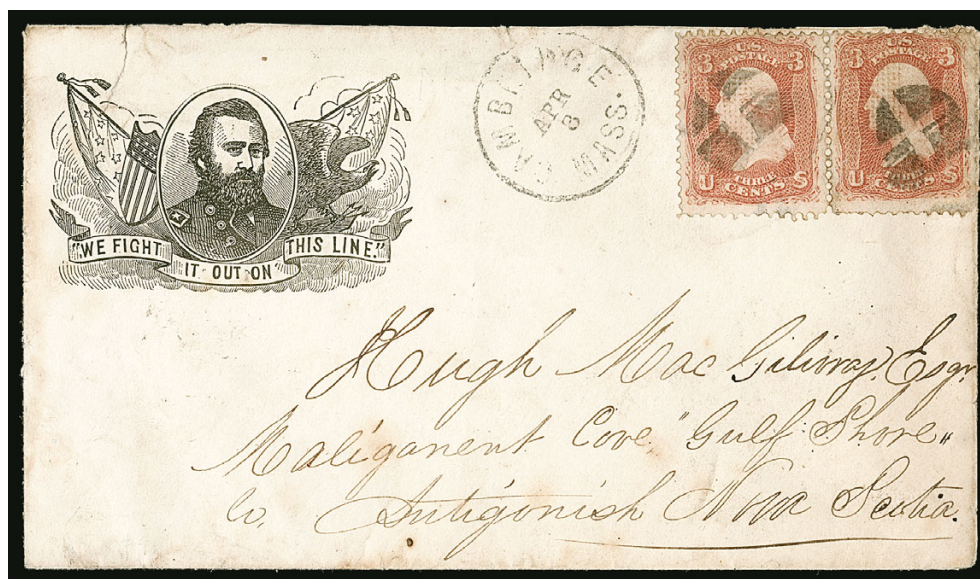 "WE FIGHT IT OUT ON THIS LINE."
CAMBRIDGE MASS.
APR
8
U.S.
POSTAGE
3 3
THREE
U CENTS S
U.S.
POSTAGE
3 3
THREE
U CENTS S
Hugh Mac Gilivray, Esqr.
Maliganent Cove "Gulf Shore"
Co. Antigonish Nova Scotia.